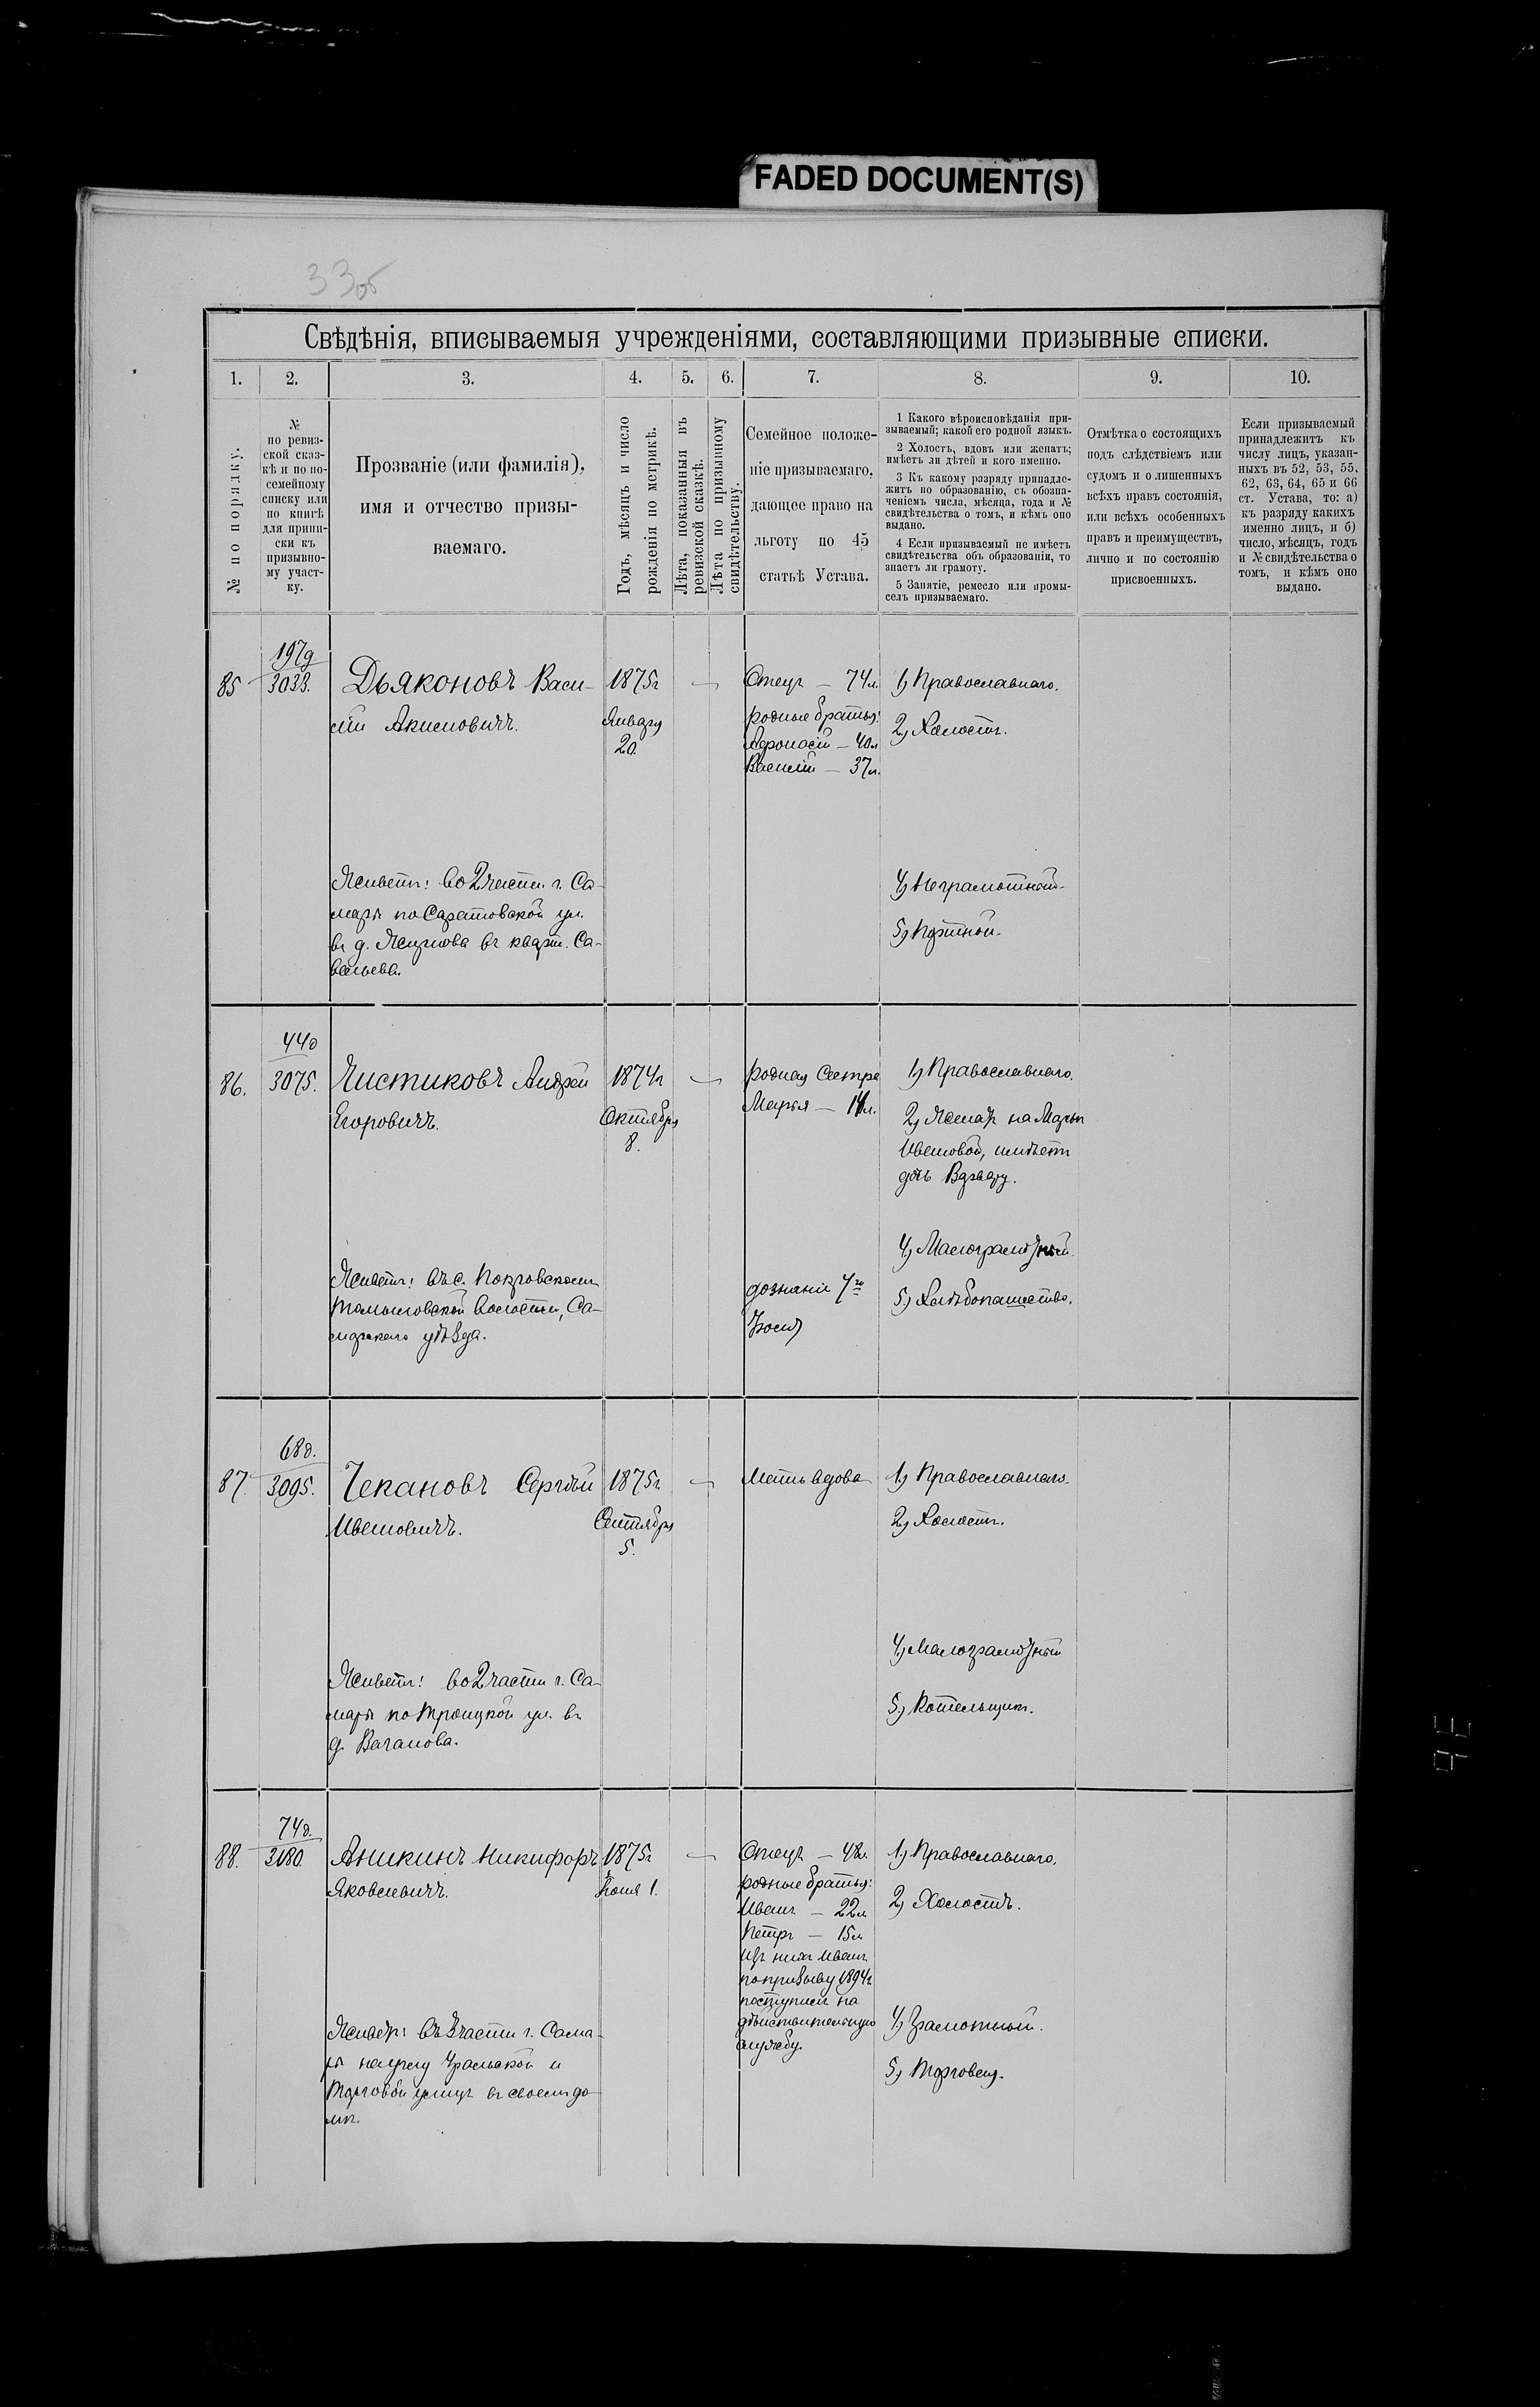 FADED DOCUMENT(S)
33об
Свѣдѣнія, вписываемыя учрежденіями, составляющими призывные списки.
1.
2.
3.
4.
5.
6.
7.
8.
9.
10.
№ по порядку.
№
по ревиз-
ской сказ-
кѣ и по по-
семейному
списку или
по книгѣ
для припи-
ски къ
призывно-
му участ-
ку.
Прозваніе (или фамилія),
имя и отчество призы-
ваемаго.
Годъ, мѣсяцъ и число
рожденія по метрикѣ.
Лѣта, показанныя въ
ревизской сказкѣ.
Лѣта по призывному
свидѣтельству.
Семейное положе-
ніе призываемаго,
дающее право на
льготу по 45
статьѣ Устава.
1 Какого вѣроисповѣданія при-
зываемый; какой его родной языкъ.
2 Холостъ, вдовъ или женатъ;
имѣетъ ли дѣтей и кого именно.
3 Къ какому разряду принадле-
житъ по образованію, съ обозна-
ченіемъ числа, мѣсяца, года и №
свидѣтельства о томъ, и кѣмъ оно
выдано.
4 Если призываемый не имѣетъ
свидѣтельства объ образованіи, то
знаетъ ли грамоту.
5 Занятіе, ремесло или промы-
селъ призываемаго.
Отмѣтка о состоящихъ
подъ слѣдствіемъ или
судомъ и о лишенныхъ
всѣхъ правъ состоянія,
или всѣхъ особенныхъ
правъ и преимуществъ,
лично и по состоянію
присвоенныхъ.
Если призываемый
принадлежитъ къ
числу лицъ, указан-
ныхъ въ 52, 53, 55,
62, 63, 64, 65 и 66
ст. Устава, то: а)
къ разряду какихъ
именно лицъ, и б)
число, мѣсяцъ, годъ
и № свидѣтельства о
томъ, и кѣмъ оно
выдано.
85
197д
3033.
Дьяконовъ Васи-
лій Акимовичъ.
1875г
Января
20.
—
Отецъ — 74л.
родные братья:
Афонасій — 40л
Василій — 37л.
1) Православнаго.
2) Холостъ.
Живетъ: во 2 части г. Са-
мары по Саратовской ул.
въ д. въ кварт. Са-
вельева.
4) Неграмотный.
5) Портной.
86.
440
3075.
Чистиковъ Андрей
Егоровичъ.
1874г
Октября
8.
—
родная сестра
Марья — 14л.
1) Православнаго.
2) Женатъ на Марьѣ
Ивановой, имѣетъ
дочь Варвару.
Живетъ: въ с. Покровскомъ
волости, Са-
марскаго уѣзда.
дознаніе 7го
Іюля
4) Малограмотный.
5) Хлѣбопашество.
87.
68д.
3095.
Чекановъ Сергѣй
Ивановичъ.
1875г
Сентября
5.
—
Мать вдова
1) Православнаго.
2) Холостъ.
Живетъ: во 2 части г. Са-
мары по Троицкой ул. въ
д. Ваганова.
4) Малограмотный
5) Котельщикъ.
88.
74д.
3180.
Аникинъ Никифоръ
Яковлевичъ.
1875г
Іюня 1.
—
Отецъ — 48л.
родные братья:
Иванъ — 22л
Петръ — 15л
Изъ нихъ Иванъ
по призыву 1894г
поступилъ на
дѣйствительную
службу.
1) Православнаго.
2) Холостъ.
Живетъ: въ 3 части г. Сама-
ры на углу Уральской и
Торговой улицъ въ своемъ до-
мѣ.
4) Грамотный.
5) Торговля.